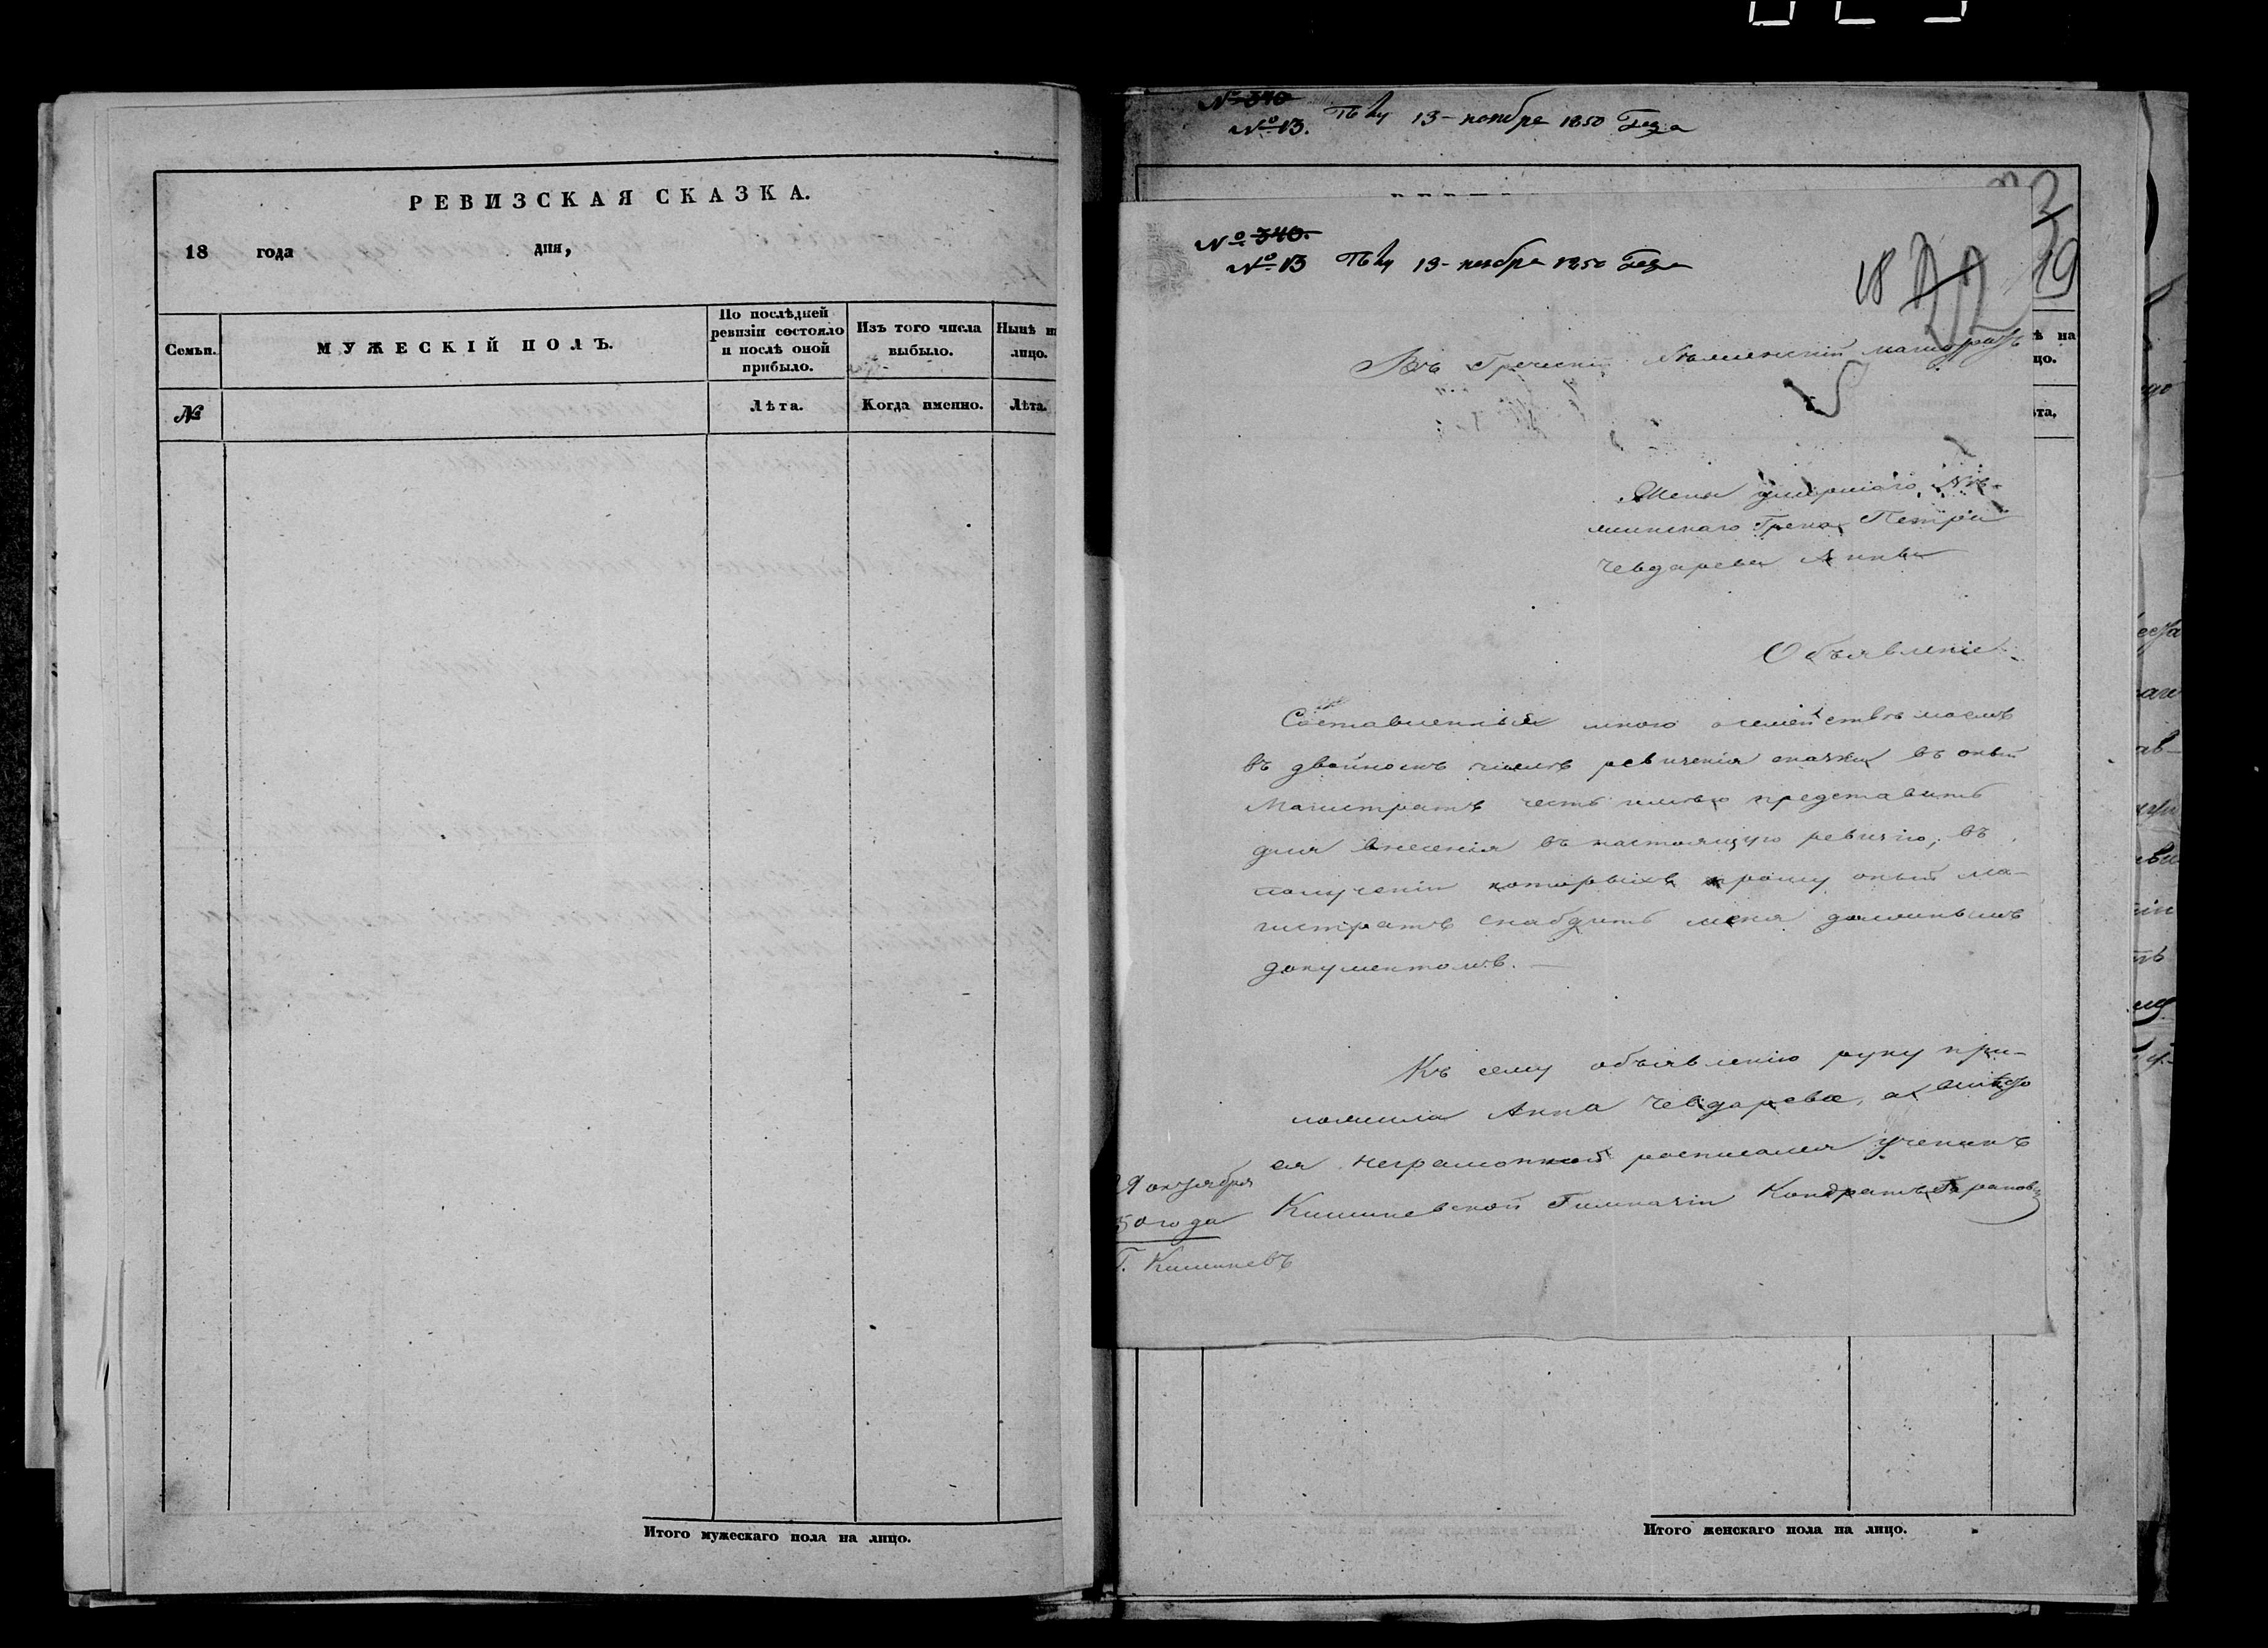 РЕВИЗСКАЯ СКАЗКА.
18 года дня,
Семьи.
МУЖЕСКІЙ ПОЛЪ.
По послѣдней ревизіи состояло и послѣ оной прибыло.
Изъ того числа выбыло.
Нынѣ на лицо.
№
Лѣта.
Когда именно.
Лѣта.
Итого мужескаго пола на лицо.
№ 340
№ 13. 13 ноября 1850 Года
№ 340.
№ 13 13 ноября 1850 Года
18
19
ѣ на
цо.
ѣта,
Въ Греческій Нѣжинскій магистратъ
Жены умершаго Нѣ-
жинскаго Грека Петра
Чевдарева Анны
Объявленіе
Составленныя мною о семействѣ моемъ
въ двойномъ числѣ ревизскія сказки въ оный
Магистратъ честь имѣю представить
для внесенія въ настоящую ревизію, въ
полученіи которыхъ прошу оный ма-
гистратъ снабдить меня должнымъ
документомъ.
Къ сему объявленію руку при-
ложила Анна Чевдарева, а вмѣсто
ея неграмотной росписался ученикъ
Кишиневской Гимназіи Кондратъ
9 октября
50 года
Г. Кишиневъ
Итого женскаго пола на лицо.